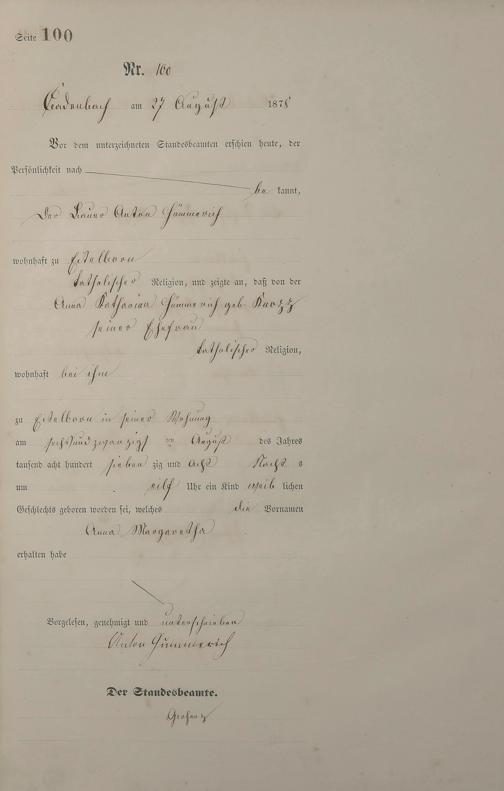 Seite 100
Nr. 100
Cadenbach am 27 August 1878
Vor dem unterzeichneten Standesbeamten erschien heute, der
Persönlichkeit nach
be kannt,
der Bauer Anton Hümmerich
wohnhaft zu Eitelborn
katholischer Religion, und zeigte an, daß von der
Anna Katharina Hümmerich geb. Kurzz
seiner Ehefrau
katholischer Religion,
wohnhaft bei ihm
zu Eitelborn in seiner Wohnung
am sechsundzwanzigst en August des Jahres
tausend acht hundert sieben zig und acht Nacht s
um eilf Uhr ein Kind weib lichen
Geschlechts geboren worden sei, welches die Vornamen
Anna Margaretha
erhalten habe
Vorgelesen, genehmigt und unterschrieben
Anton Hümmerich
Der Standesbeamte.